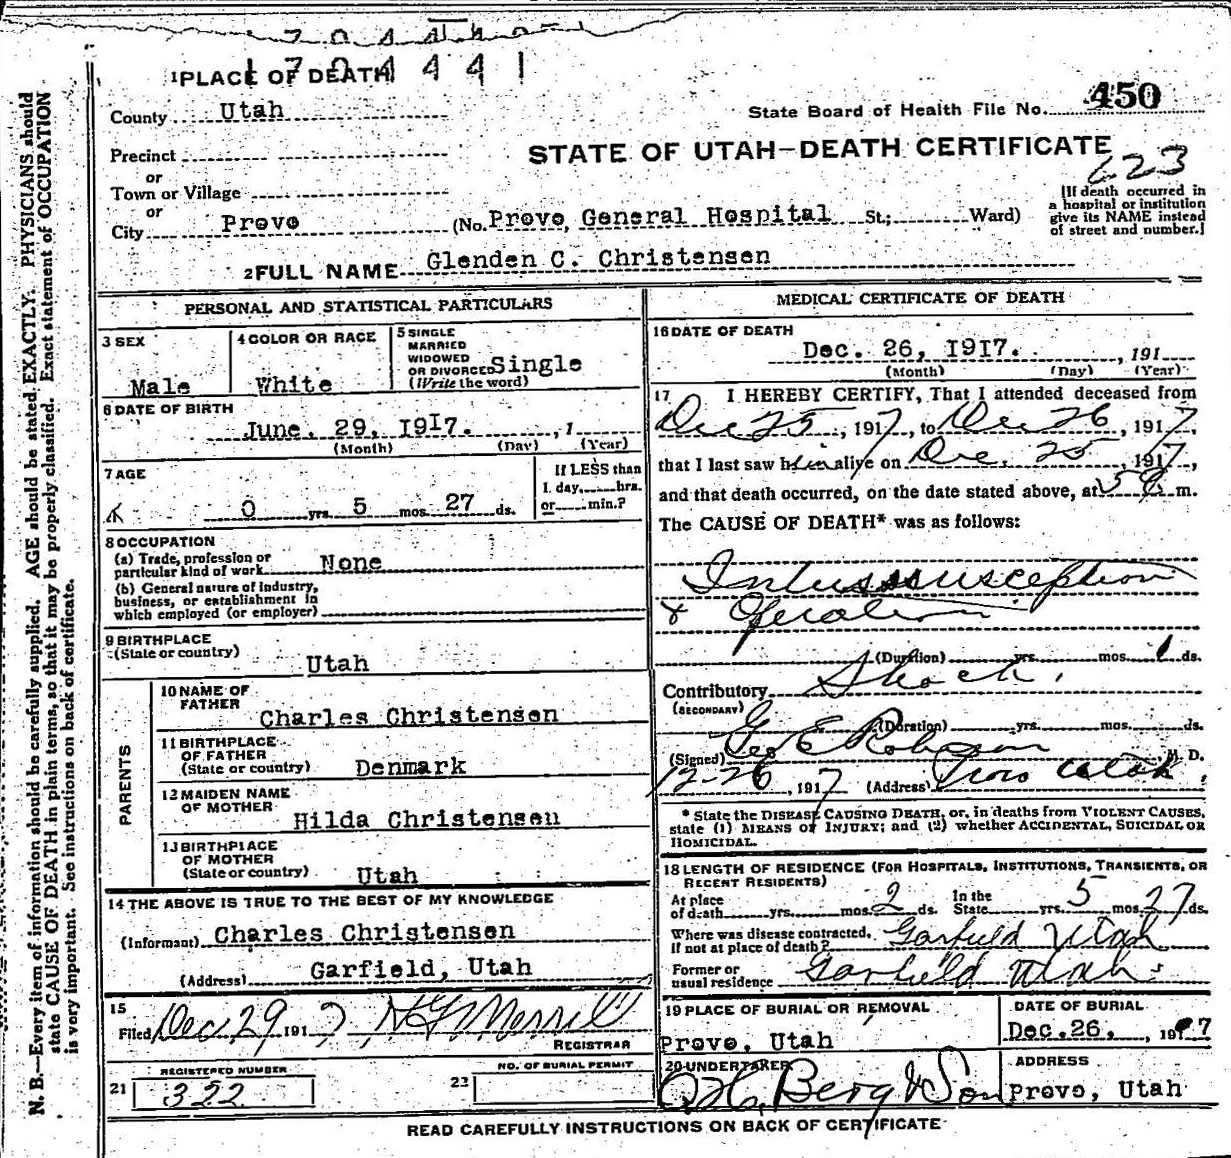 1704441
1 PLACE OF DEATH
County Utah
State Board of Health File No. 450
Precinct
or
Town or Village
or
City Provo
STATE OF UTAH—DEATH CERTIFICATE
623
(No. Provo, General Hospital St.; Ward)
[If death occurred in
a hospital or institution
give its NAME instead
of street and number.]
2 FULL NAME Glenden C. Christensen
PERSONAL AND STATISTICAL PARTICULARS
3 SEX
Male
4 COLOR OR RACE
White
5 SINGLE
MARRIED
WIDOWED
OR DIVORCED Single
(Write the word)
6 DATE OF BIRTH
June. 29, 1917. , 1
(Month) (Day) (Year)
7 AGE
0 yrs. 5 mos. 27 ds.
If LESS than
1 day, hrs.
or min.?
8 OCCUPATION
(a) Trade, profession or
particular kind of work None
(b) General nature of industry,
business, or establishment in
which employed (or employer)
9 BIRTHPLACE
(State or country)
Utah
PARENTS
10 NAME OF
FATHER
Charles Christensen
11 BIRTHPLACE
OF FATHER
(State or country) Denmark
12 MAIDEN NAME
OF MOTHER
Hilda Christensen
13 BIRTHPLACE
OF MOTHER
(State or country) Utah
14 THE ABOVE IS TRUE TO THE BEST OF MY KNOWLEDGE
(Informant) Charles Christensen
(Address) Garfield, Utah
15
Filed Dec 29 1917 Merrill
REGISTRAR
REGISTERED NUMBER
21 322
NO. OF BURIAL PERMIT
23
MEDICAL CERTIFICATE OF DEATH
16 DATE OF DEATH
Dec. 26, 1917. , 191
(Month) (Day) (Year)
17 I HEREBY CERTIFY, That I attended deceased from
Dec 25, 1917, to Dec 26, 1917,
that I last saw him alive on Dec. 25, 1917,
and that death occurred, on the date stated above, at 5 m.
The CAUSE OF DEATH* was as follows:
Intussusception
& Operation
(Duration) yrs. mos. 1 ds.
Contributory Shock.
(SECONDARY)
(Duration) yrs. mos. ds.
(Signed) Geo E Robison M. D.
12-26, 1917 (Address) Provo Utah.
* State the DISEASE CAUSING DEATH, or, in deaths from VIOLENT CAUSES,
state (1) MEANS OF INJURY; and (2) whether ACCIDENTAL, SUICIDAL OR
HOMICIDAL.
18 LENGTH OF RESIDENCE (FOR HOSPITALS, INSTITUTIONS, TRANSIENTS, OR
RECENT RESIDENTS)
At place
of death yrs. mos. 2 ds. In the
State yrs. 5 mos. 27 ds.
Where was disease contracted,
if not at place of death? Garfield Utah
Former or
usual residence Garfield Utah
19 PLACE OF BURIAL OR REMOVAL
Provo, Utah
DATE OF BURIAL
Dec. 26, 1917
20 UNDERTAKER
O.H. Berg & Son
ADDRESS
Provo, Utah
READ CAREFULLY INSTRUCTIONS ON BACK OF CERTIFICATE
N. B.—Every item of information should be carefully supplied. AGE should be stated EXACTLY. PHYSICIANS should
state CAUSE OF DEATH in plain terms, so that it may be properly classified. Exact statement of OCCUPATION
is very important. See instructions on back of certificate.